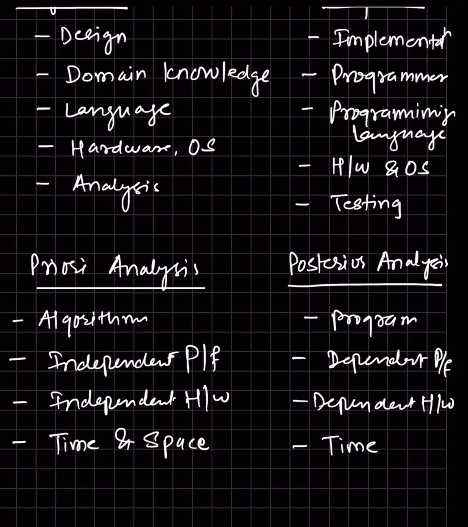 - Design
- Domain knowledge
- Language
- Hardware, OS
- Analysis
- Implementat
- Programmer
- Programiming
Language
- H/w & OS
- Testing
Priori Analysis
- Algorithm
- Independent P/f
- Independent H/w
- Time & Space
Posterior Analysis
- Program
- Dependent P/f
- Dependent H/w
- Time